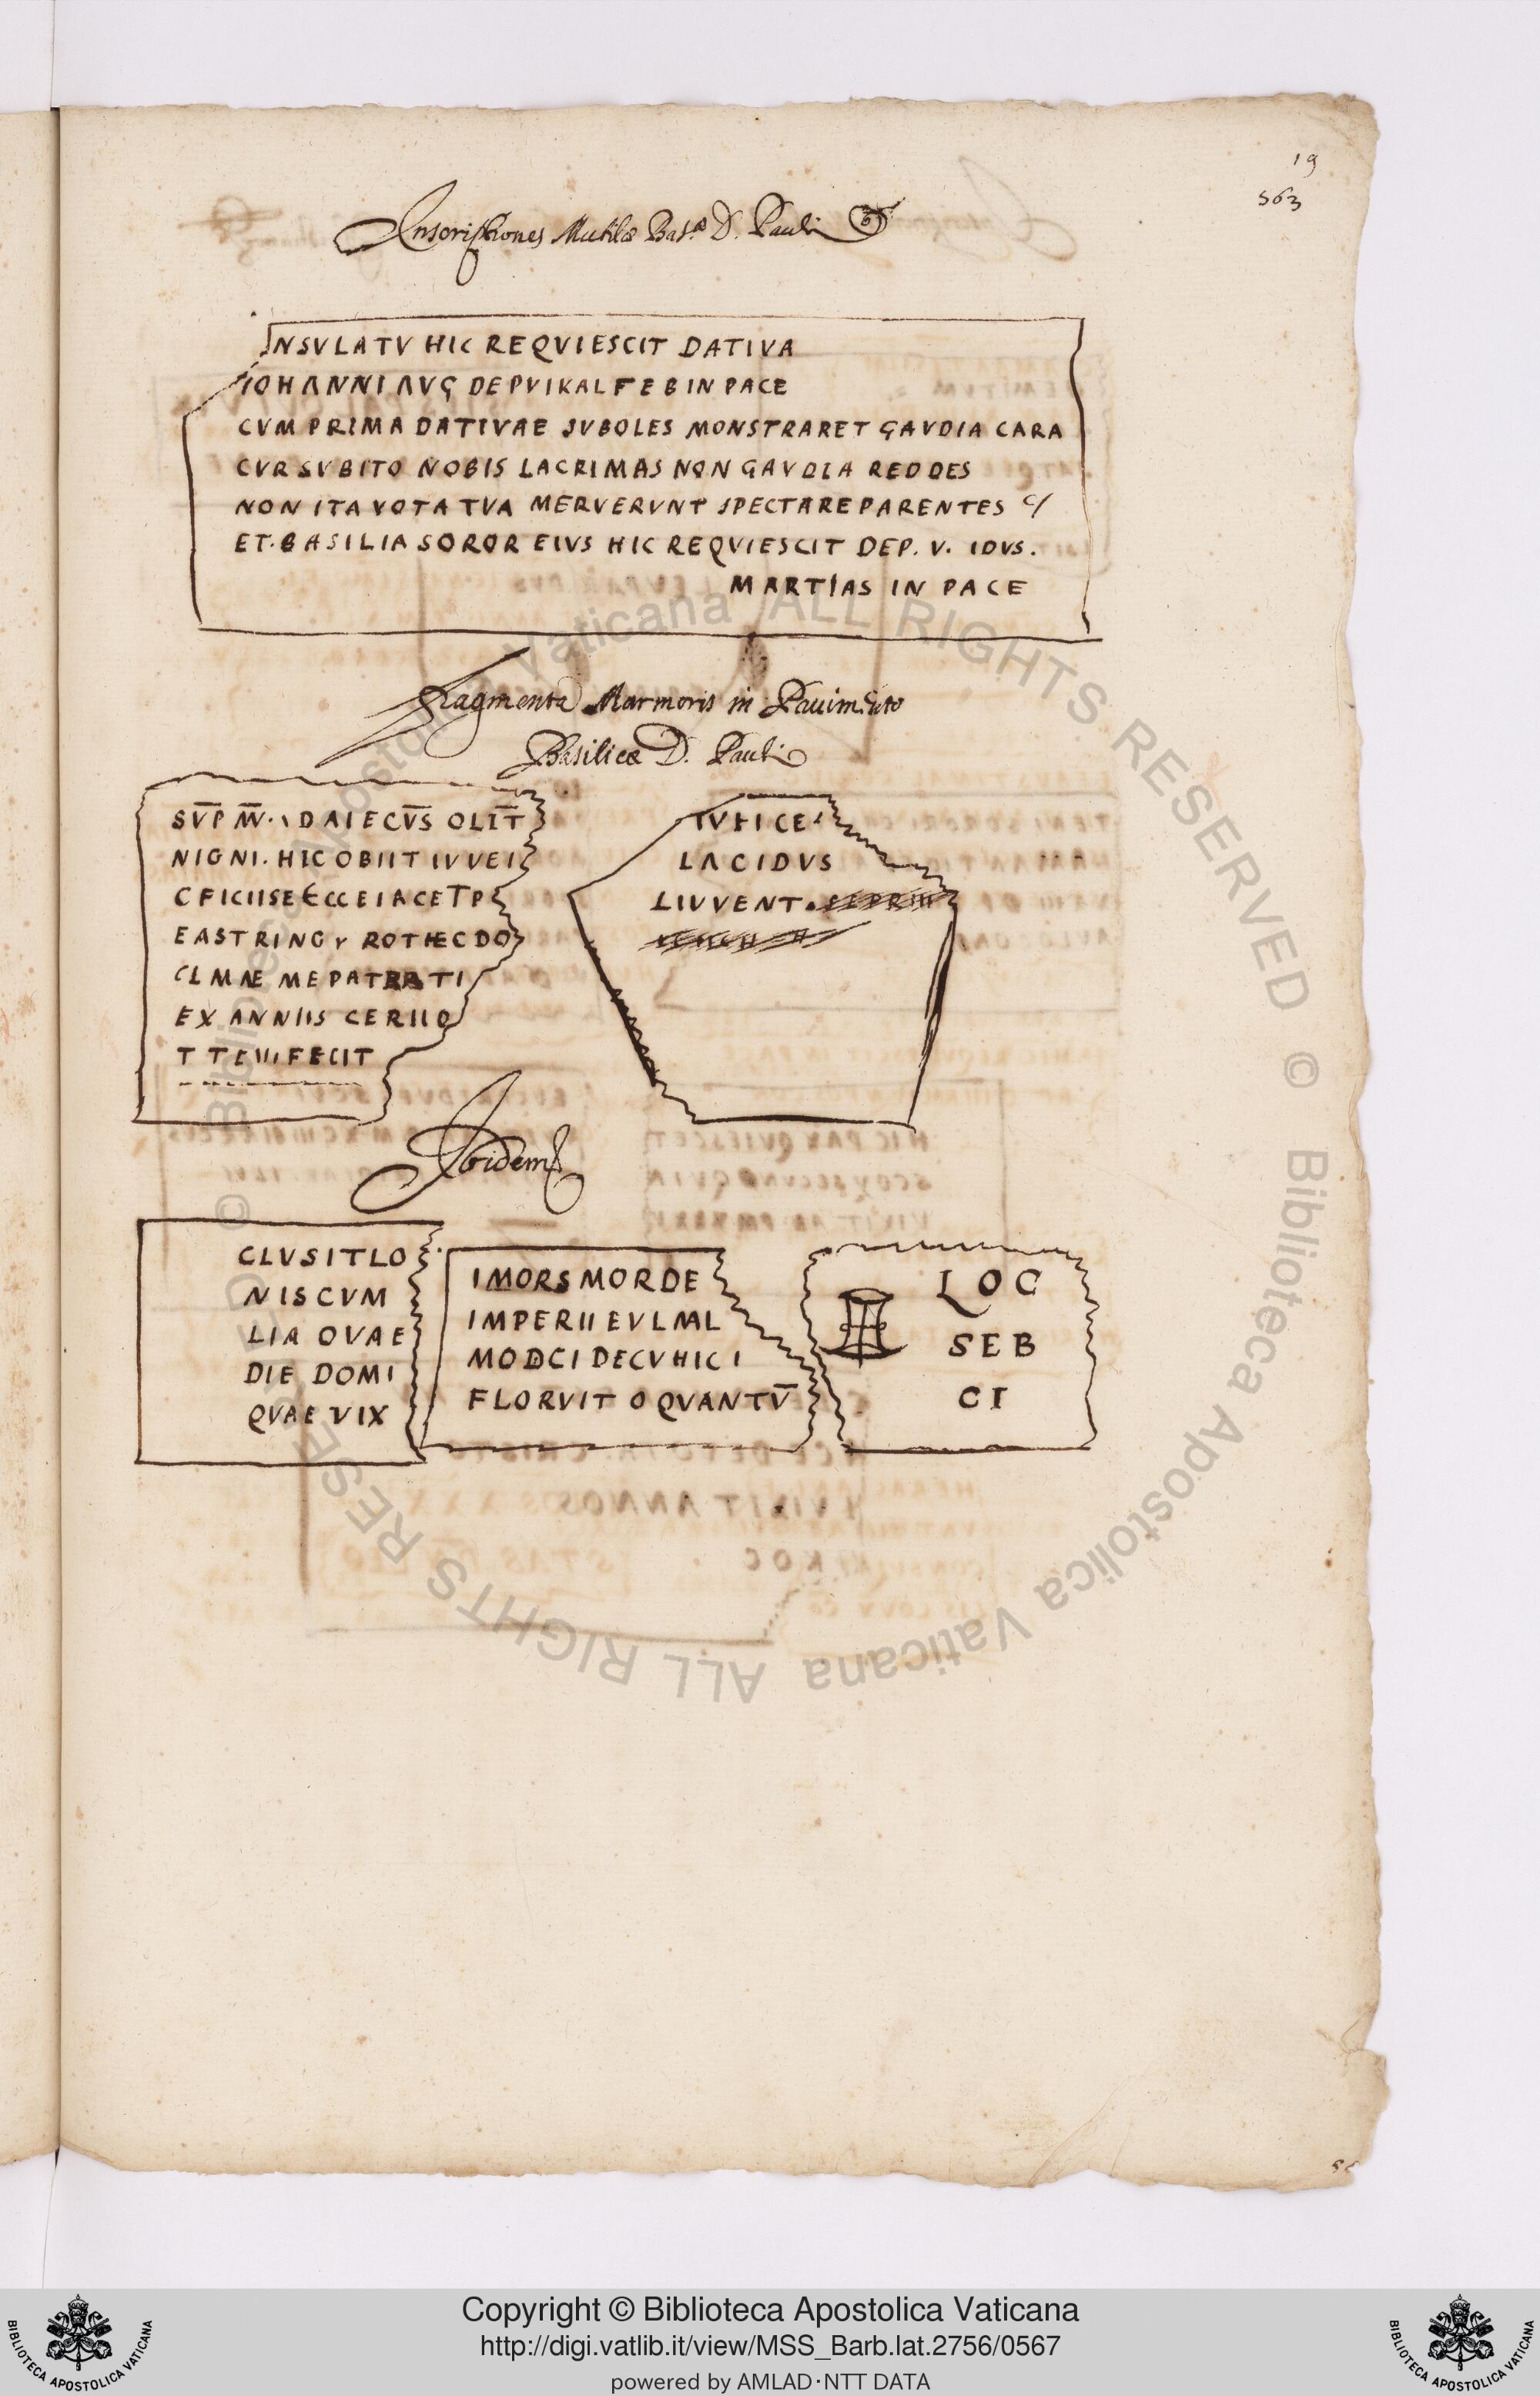 19
563
Inscriptiones Mutilae Bas.ae D. Pauli
INSVLATV HIC REQVIESCIT DATIVA
IOHANNI AVG DEP VI KAL FEB IN PACE
CVM PRIMA DATIVAE SVBOLES MONSTRARET GAVDIA CARA
CVR SVBITO NOBIS LACRIMAS NON GAVDIA REDDES
NON ITA VOTA TVA MERVERVNT SPECTARE PARENTES
ET. BASILIA SOROR EIVS HIC REQVIESCIT DEP. V. IDVS.
MARTIAS IN PACE
Fragmenta Marmoris in Pavimento
Basilicae D. Pauli
NIGNI. HIC OBIIT IVVEI
CFICIISE ECCE IACET P
EASTRINGY ROTHECDO
EX ANNIIS CERIIO
T TEIIIFECIT
LACIDVS
LIVVENT
Ibidem
CLVSIT LO
NIS CVM
LIA OVAE
DIE DOMI
QVAE VIX
IMORS MORDE
IMPERII EVLML
MODCI DECVHICI
FLORVIT O QVANTV̅
LOC
SEB
CI
Copyright © Biblioteca Apostolica Vaticana
http://digi.vatlib.it/view/MSS_Barb.lat.2756/0567
powered by AMLAD·NTT DATA
BIBLIOTECA APOSTOLICA VATICANA
BIBLIOTECA APOSTOLICA VATICANA